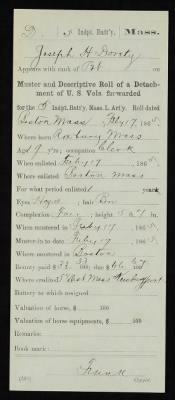 D | 5 Indpt. Batt'y, | Mass.
Joseph H Doroty
Appears with rank of Pvt on
Muster and Descriptive Roll of a Detach-
ment of U. S. Vols. forwarded
for the 5 Indpt. Batt'y, Mass. L. Art'y. Roll dated
Boston Mass Feby 17, 1865.
Where born Roxbury Mass
Age 19 y'rs; occupation Clerk
When enlisted Feby 17, 1865.
Where enlisted Boston Mass
For what period enlisted 1 years.
Eyes Hazel; hair Bro
Complexion Fair; height 5 ft. 7 in.
When mustered in Feby 17, 1865.
Muster-in to date Feby 17, 1865.
Where mustered in Boston
Bounty paid $ 33 100; due $ 100
Where credited 5 Dist Mass Newburyport
Battery to which assigned
Valuation of horse, $ 100
Valuation of horse equipments, $ 100
Remarks:
Book mark: